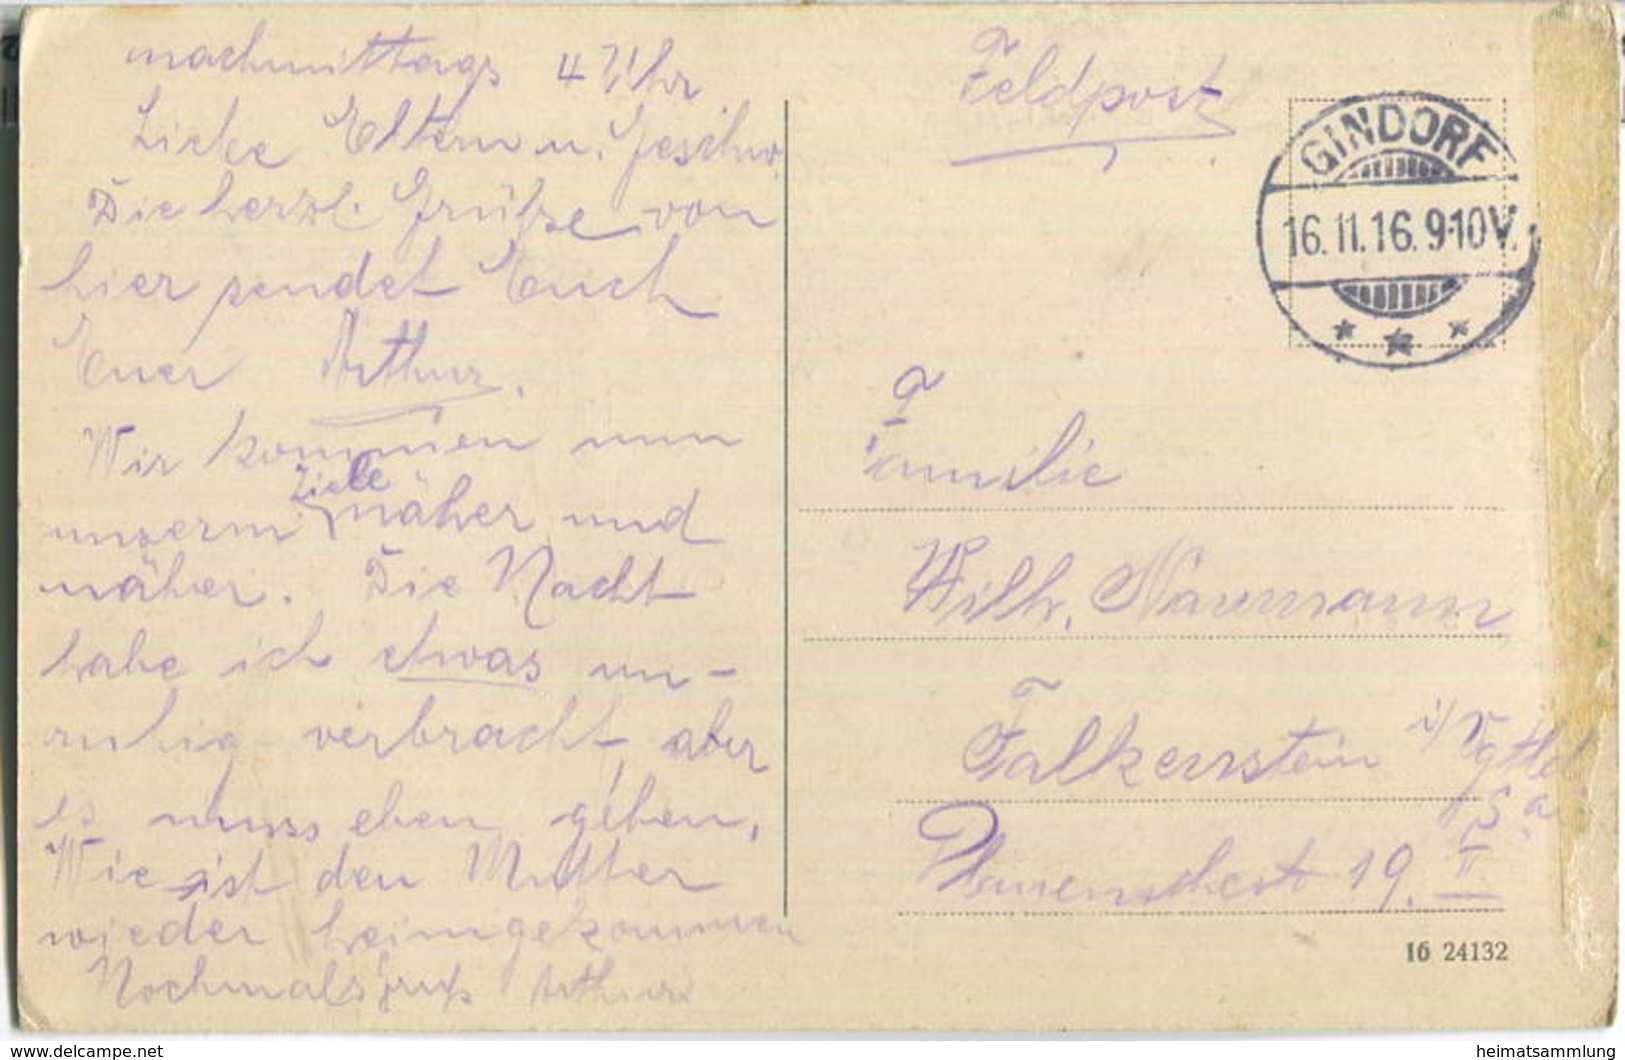 nachmittags 4 Uhr
Liebe Eltern u. Geschw.
Die herzl. Grüsse von
hier sendet Euch
Euer Arthur.
Wir kommen nun
unserm Ziele näher und
näher. Die Nacht
habe ich etwas un-
ruhig verbracht, aber
es muss eben gehen,
Wie ist den Mutter
wieder heimgekommen
Nochmals Gruß Arthur
Feldpost
GINDORF
16.11.16. 9-10V.
Familie
Wilh. Naumann
Falkenstein i/Vgtld
Sa
Plauenschestr 19. II
16 24132
www.delcampe.net
heimatsammlung